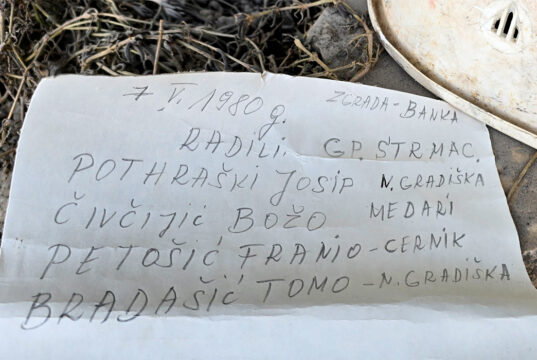 7 V. 1980 g. ZGRADA-BANKA
RADILI: GP. STRMAC.
POTHRAŠKI JOSIP N. GRADIŠKA
ČIVČIJIĆ BOŽO MEDARI
PETOŠIĆ FRANJO - CERNIK
BRADAŠIĆ TOMO - N. GRADIŠKA